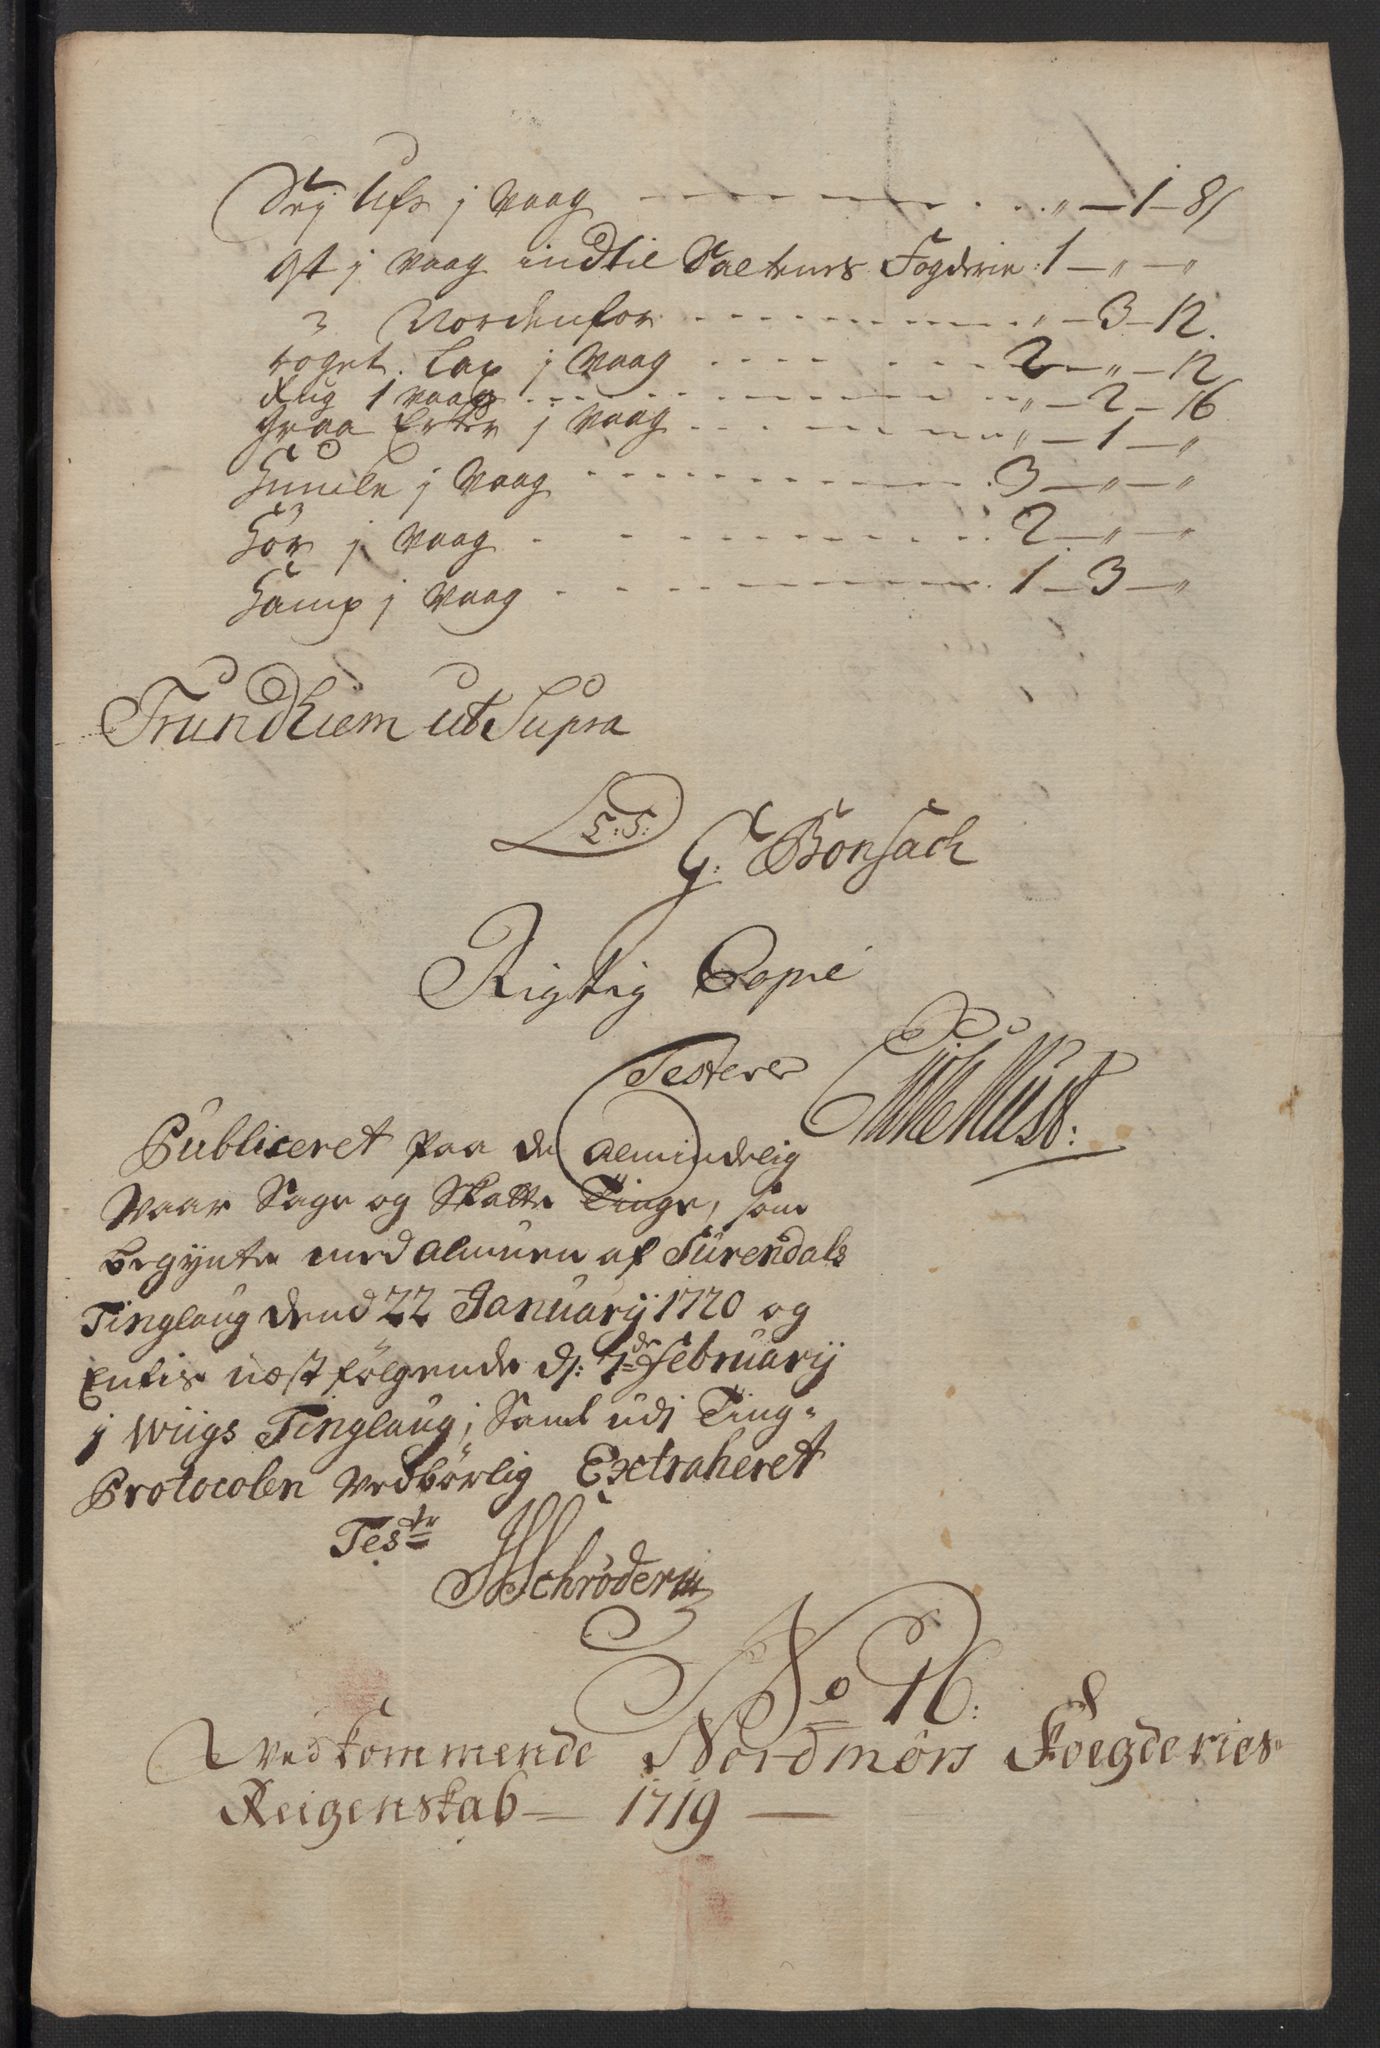 Sej Ufs j Vaag - - - „ - 1 - 8
Ost j Vaag indtil Saltens Fogderie : 1 - „ - „
Nordenfor - - - „ - 3 - 12.
røget Lax j Vaag - - - 2 - „ - 12
Rug 1 Vaag - - - „ - 2 - 16
Graa Erter j Vaag - - - „ - 1 - „
Humle j Vaag - - - 3 - „ - „
Hør j Vaag - - - 2 - „ - „
Hamp j Vaag - - - 1 - 3 - „
Trundhiem ut Supra
L:S:
G: Bonsach
Rigtig Copie
Testerer
Publiceret paa de Almindelig
Vaar Sage og Skatte Tinge, som
begynte med Almuen af Surendals
Tinglaug dend 22 January 1720 og
Entis næst følgende d: 7de February
j Wiigs Tinglaug; Samt udj Ting-
Protocolen Vedbørlig Extraheret
Testr
Schrøder
No 16:
Vedkommende Nordmørs Foegderies
Reigenskab - 1719 -